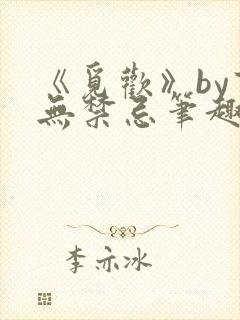 《覓歡》by
無禁忌筆趣
李亦冰